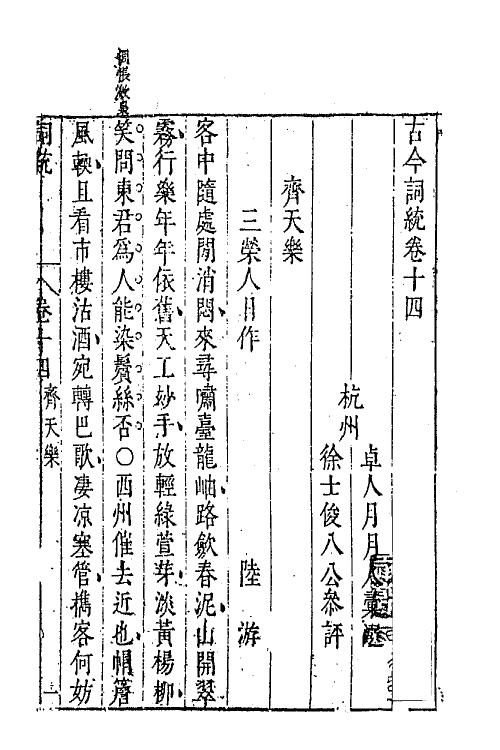 古今詞統卷十四
杭州
卓人月月人彙選
徐士俊八公叅評
齊天樂
三榮人日作 陸游
客中隨處閒消悶來尋嘯臺龍岫路歛春泥山開翠
霧行樂年年依舊天工妙手放輕綠萱芽淡黃楊柳
惆悵
笑問東君爲人能染鬢絲否○西州催去近也帽簷
風軟且看市樓沽酒宛轉巴歌凄凉塞管攜客何妨
詞統 卷十四 齊天樂 一